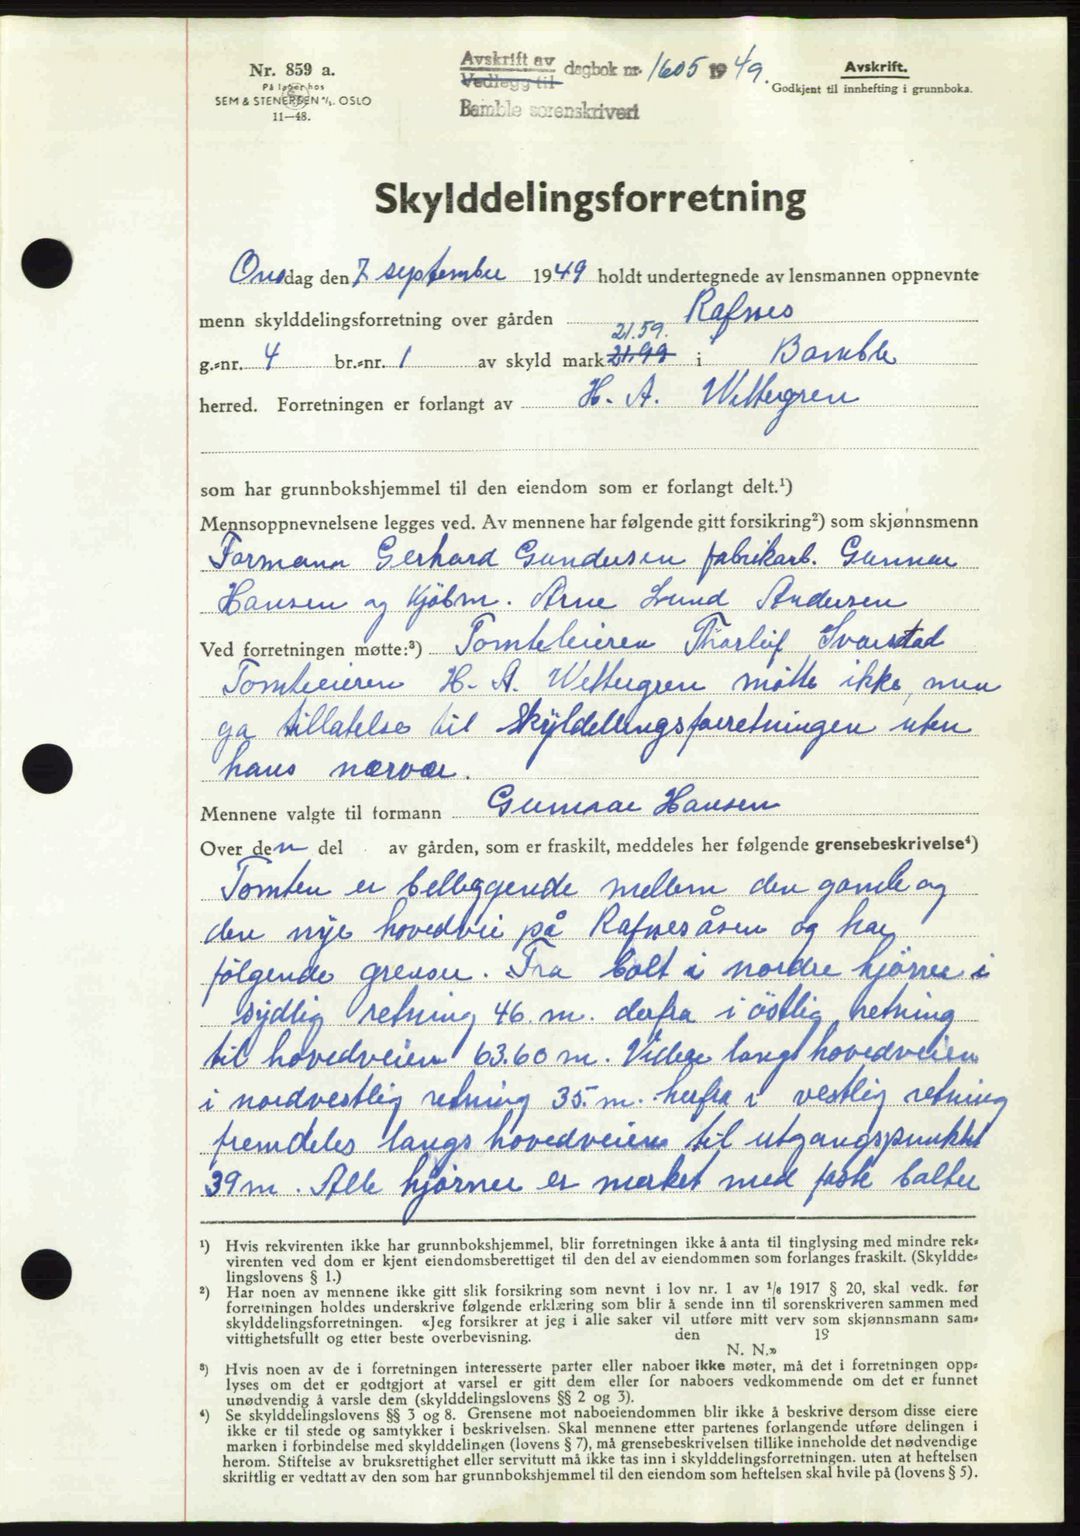 Nr. 859 a.
På lager hos
SEM & STENERSEN A/S. OSLO
11—48.
Avskrift av
Vedlegg til
dagbok nr. 1605 1949.
Bamble sorenskriveri
Avskrift.
Godkjent til innhefting i grunnboka.
Skylddelingsforretning
Onsdag den 7 september 1949 holdt undertegnede av lensmannen oppnevnte
menn skylddelingsforretning over gården Rafnes
21.59.
g.-nr. 4 br.-nr. 1 av skyld mark 21.99 i Bamble
herred. Forretningen er forlangt av H. A. Wettergren
som har grunnbokshjemmel til den eiendom som er forlangt delt.¹)
Mennsoppnevnelsene legges ved. Av mennene har følgende gitt forsikring²) som skjønnsmenn
Formann Gerhard Gundersen fabrikarb. Gunnar
Hansen og Kjöbm. Arne Lund Andersen
Ved forretningen møtte:³) Tomteeieren Thorleif Svarstad
Tomteieren H. A. Wettergren møtte ikke, men
ga tillatelse til Skyldelingsforretningen uten
hans nærvær.
Mennene valgte til formann Gunnar Hansen
Over den del av gården, som er fraskilt, meddeles her følgende grensebeskrivelse⁴)
Tomten er belleggende mellem den gamle og
den nye hovedvei på Rafnesåsen og har
følgende grenser. Fra bolt i nordre hjørne i
sydlig retning 46 m. derfra i östlig retning
til hovedveien 63.60 m. Videre langs hovedveien
i nordvestlig retning 35 m. herfra i vestlig retning
fremdeles langs hovedveien til utgangspunktet
39 m. Alle hjørner er merket med faste bolter
¹) Hvis rekvirenten ikke har grunnbokshjemmel, blir forretningen ikke å anta til tinglysing med mindre rek-
virenten ved dom er kjent eiendomsberettiget til den del av eiendommen som forlanges fraskilt. (Skyldde-
lingslovens § 1.)
²) Har noen av mennene ikke gitt slik forsikring som nevnt i lov nr. 1 av 1/6 1917 § 20, skal vedk. før
forretningen holdes underskrive følgende erklæring som blir å sende inn til sorenskriveren sammen med
skylddelingsforretningen. «Jeg forsikrer at jeg i alle saker vil utføre mitt verv som skjønnsmann sam-
vittighetsfullt og etter beste overbevisning. den 19
N. N.»
³) Hvis noen av de i forretningen interesserte parter eller naboer ikke møter, må det i forretningen opp-
lyses om det er godtgjort at varsel er gitt dem eller for naboers vedkommende om det er funnet
unødvendig å varsle dem (skylddelingslovens §§ 2 og 3).
⁴) Se skylddelingslovens §§ 3 og 8. Grensene mot naboeiendommen blir ikke å beskrive dersom disse eiere
ikke er til stede og samtykker i beskrivelsen. Skal mennene etter partenes forlangende utføre delingen i
marken i forbindelse med skylddelingen (lovens § 7), må grensebeskrivelsen tillike inneholde det nødvendige
herom. Stiftelse av bruksrettighet eller servitutt må ikke tas inn i skylddelingsforretningen. uten at heftelsen
skriftlig er vedtatt av den som har grunnbokshjemmel til den eiendom som heftelsen skal hvile på (lovens § 5).